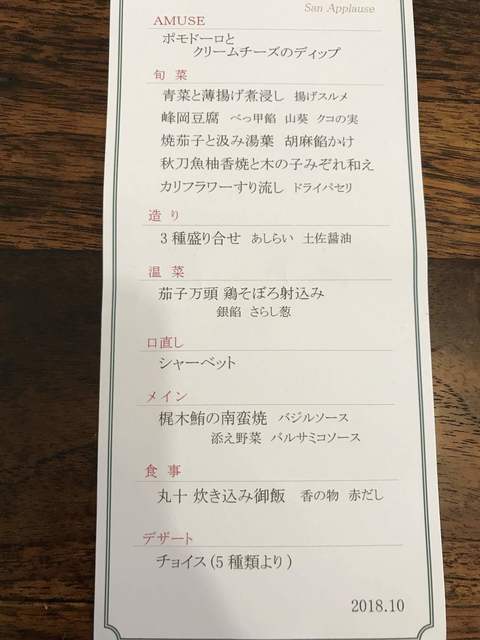 San Applause
AMUSE
ポモドーロと
クリームチーズのディップ
旬 菜
青菜と薄揚げ煮浸し 揚げスルメ
峰岡豆腐 べっ甲餡 山葵 クコの実
焼茄子と汲み湯葉 胡麻餡かけ
秋刀魚柚香焼と木の子みぞれ和え
カリフラワーすり流し ドライパセリ
造 り
3種盛り合せ あしらい 土佐醤油
温 菜
茄子万頭 鶏そぼろ射込み
銀餡 さらし葱
口直し
シャーベット
メイン
梶木鮪の南蛮焼 バジルソース
添え野菜 バルサミコソース
食 事
丸十 炊き込み御飯 香の物 赤だし
デザート
チョイス(5種類より)
2018.10